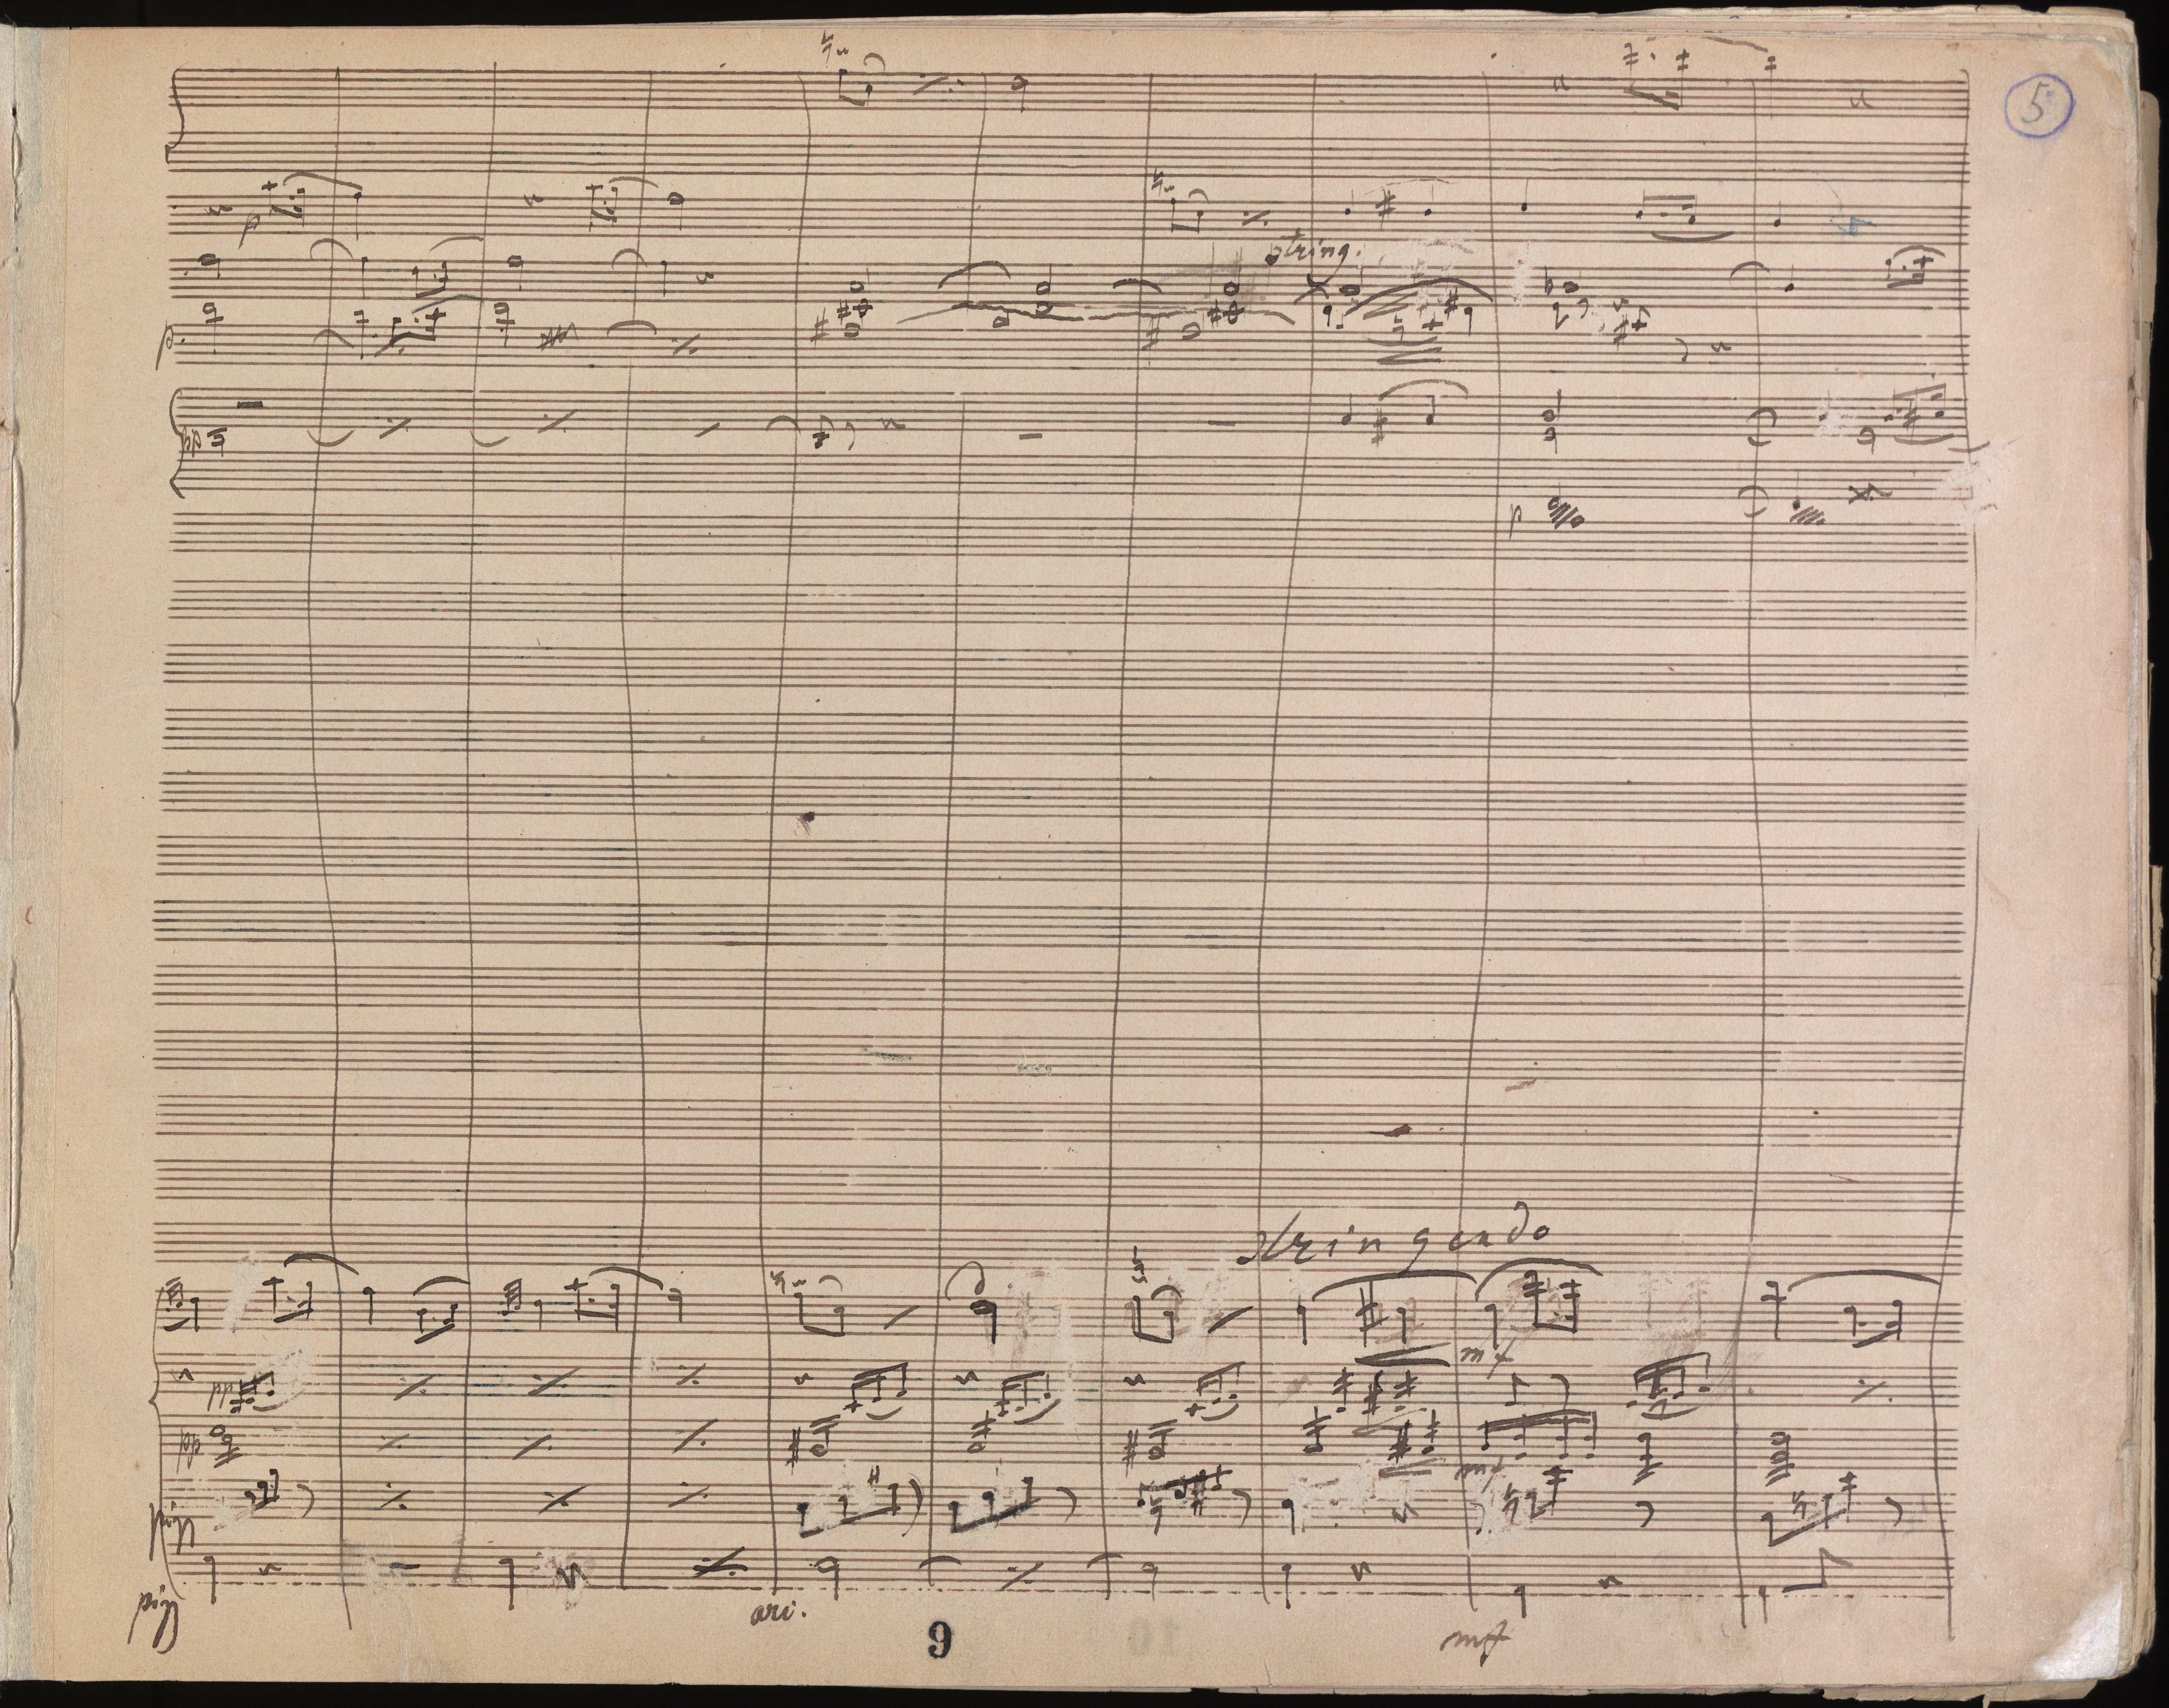 5
p
string.
p.
pp
p
stringendo
mf
pp
pp
mf
pizz
pizz
arc.
9
mf